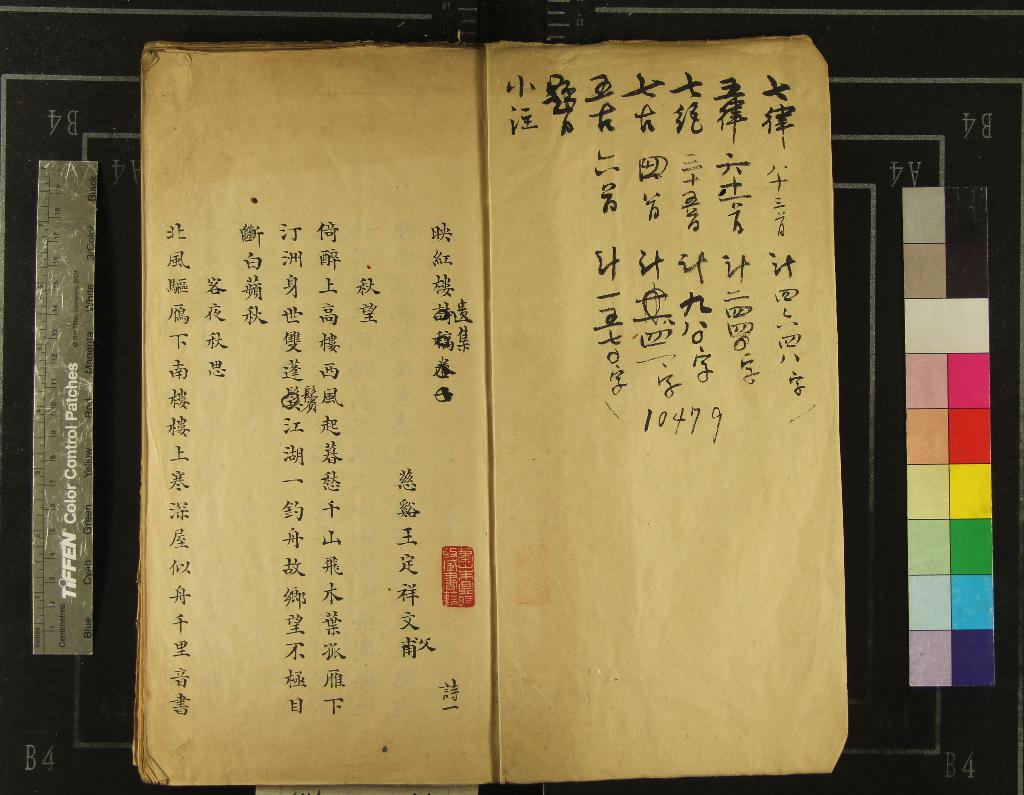 七律 八十三首 計四六四八字
五律 六十一首 計二四四〇字
七絕 三十五首 計九八〇字
七古 四首 計四一字
五古 六首 計一五七〇字
題目
小注
10479
映紅樓詩稿卷
遺集
詩一
慈谿王定祥文甫
父
秋望
倚醉上高樓西風起暮愁千山飛木葉孤雁下
汀洲身世雙蓬鬢江湖一釣舟故鄉望不極目
斷白蘋秋
客夜秋思
北風驅鴈下南樓樓上寒深屋似舟千里音書
TIFFEN Color Control Patches
Inches
Centimetres
Blue
Cyan
Green
Yellow
Red
Magenta
White
3/Color
Black
B4
A4
B4
A4
B4
B4